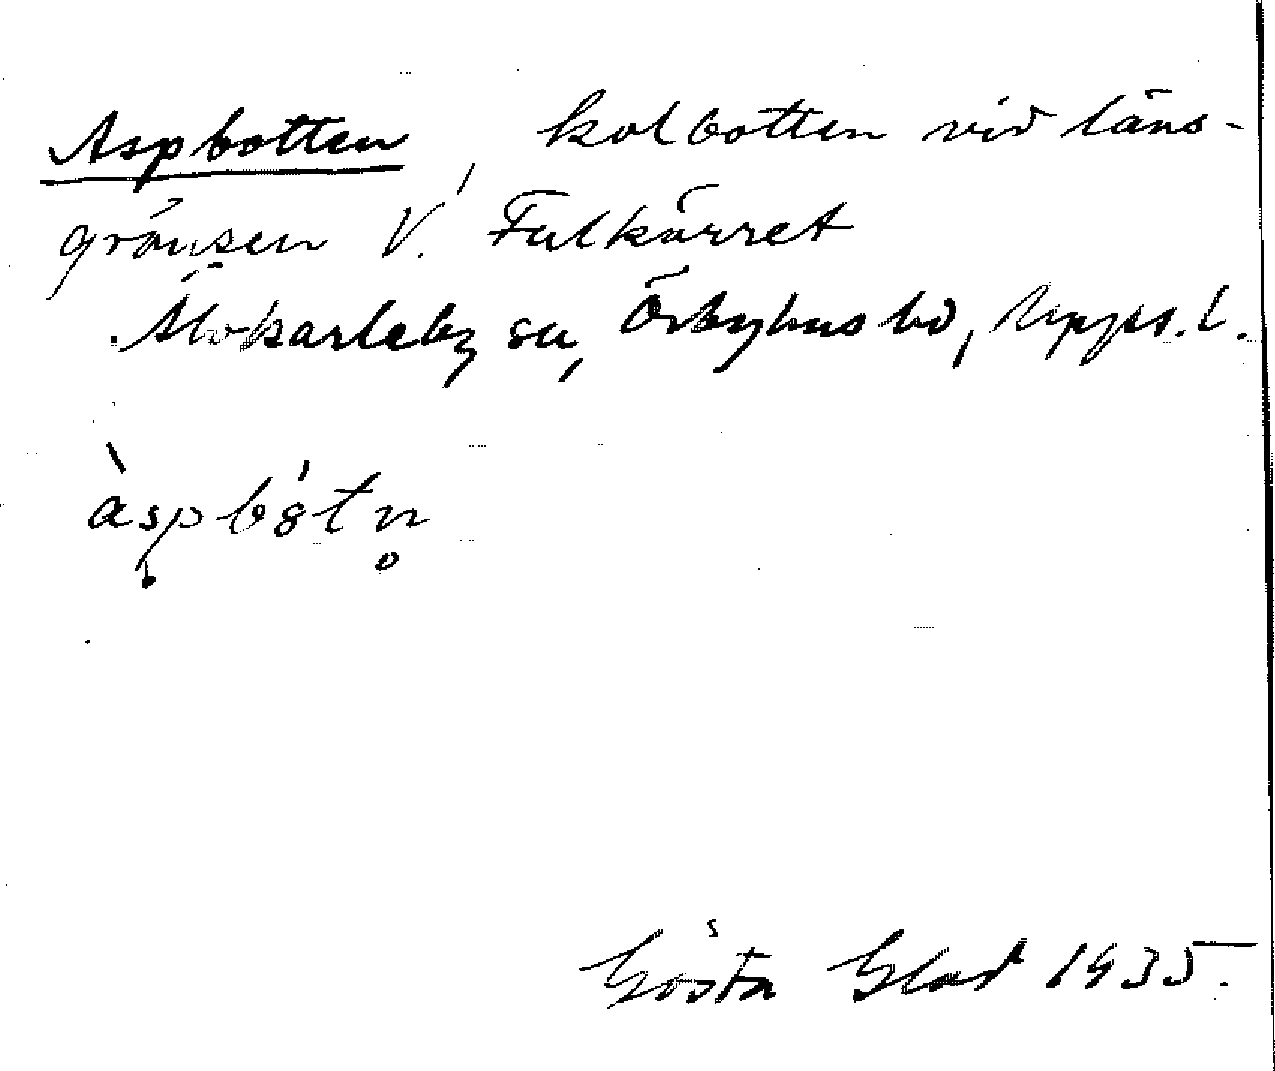 Aspbotten, kolbotten vid läns-
gränsen V. Fulkärret
Älvkarleby sn, Örbyhus hd, Upps. l.
àspbót n̥
Gösta Glad 1935.